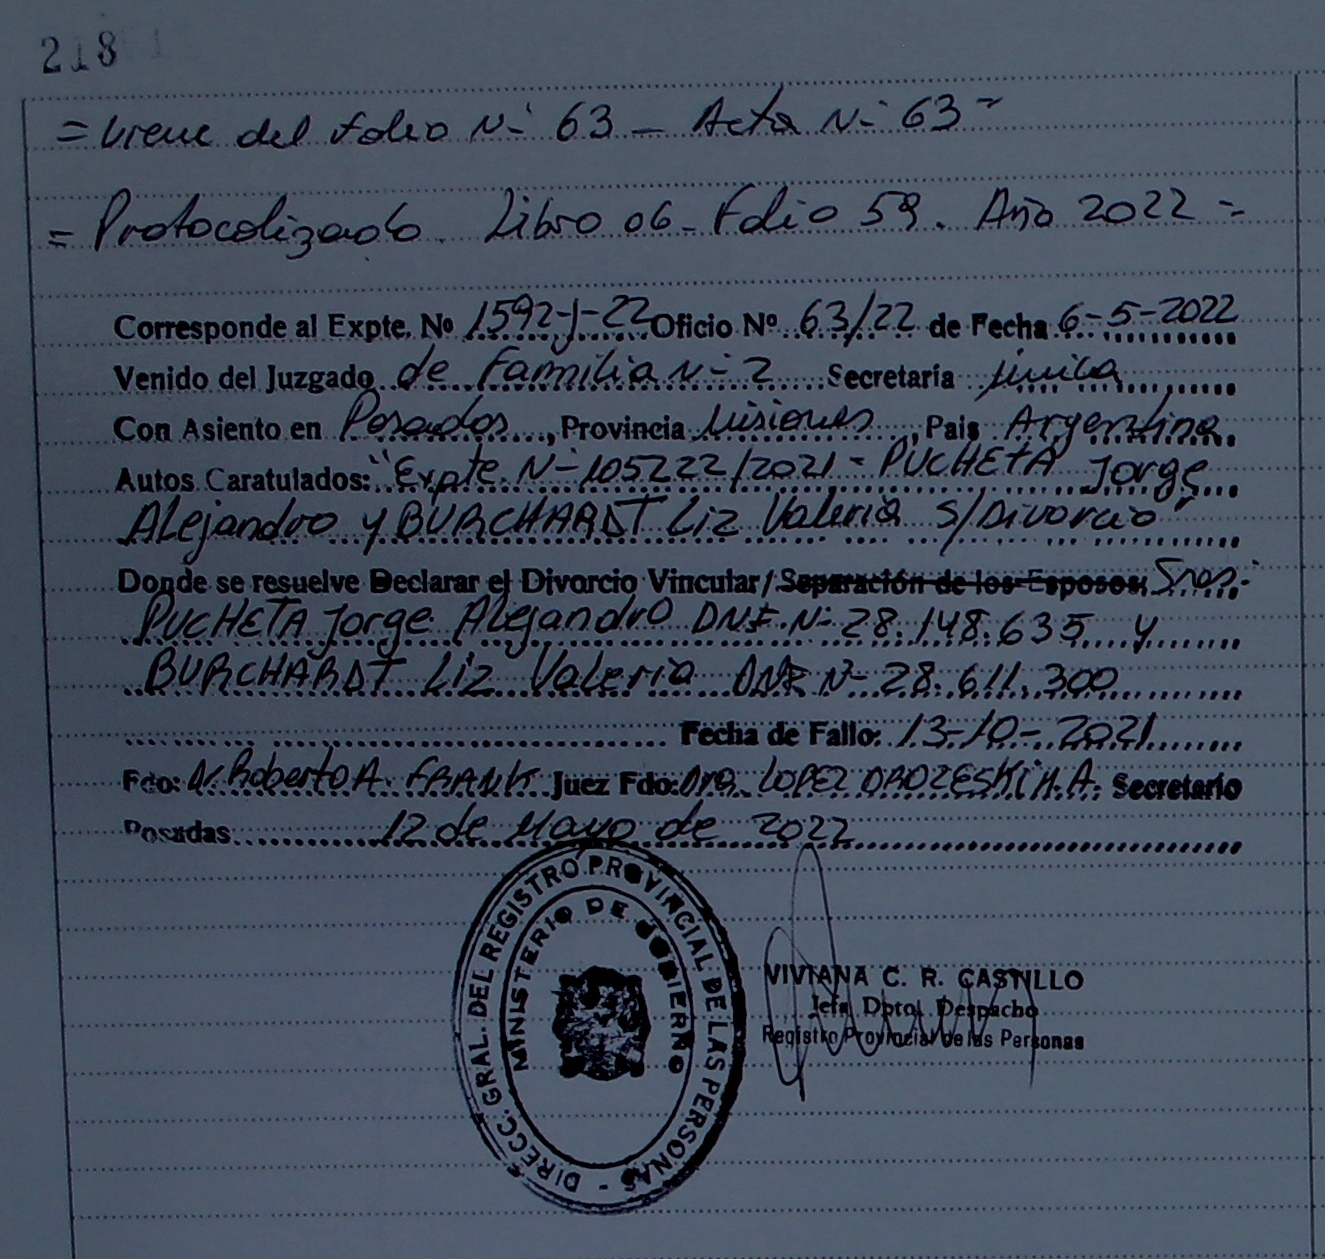 218
= Viene del folio N- 63 - Acta N- 63 -
= Protocolizado. Libro 06 - Folio 59. Año 2022 =
Corresponde al Expte. Nº 1592-J-22 Oficio Nº 63/22 de Fecha 6-5-2022
Venido del Juzgado de Familia N- 2 Secretaria única
Con Asiento en Posadas, Provincia Misiones, Pais Argentina
Autos Caratulados: "Expte. N- 105222/2021 - PUCHETA Jorge
Alejandro y BURCHARDT Liz Valeria S/Divorcio"
Donde se resuelve Declarar el Divorcio Vincular/Separación de los Esposos; Sres.
PUCHETA Jorge Alejandro DNI. N- 28.148.635 y
BURCHARDT Liz Valeria DNI N- 28.611.300
Fecha de Fallo: 13-10-2021
Fdo: Dr. Roberto A. FRANK Juez Fdo: Dra. LOPEZ OROZESKI M.A. Secretario
Posadas 12 de Mayo de 2022
DIRECC. GRAL. DEL REGISTRO PROVINCIAL DE LAS PERSONAS -
MINISTERIO DE GOBIERNO
VIVIANA C. R. CASTILLO
Jefa Dpto. Despacho
Registro Provincial de las Personas